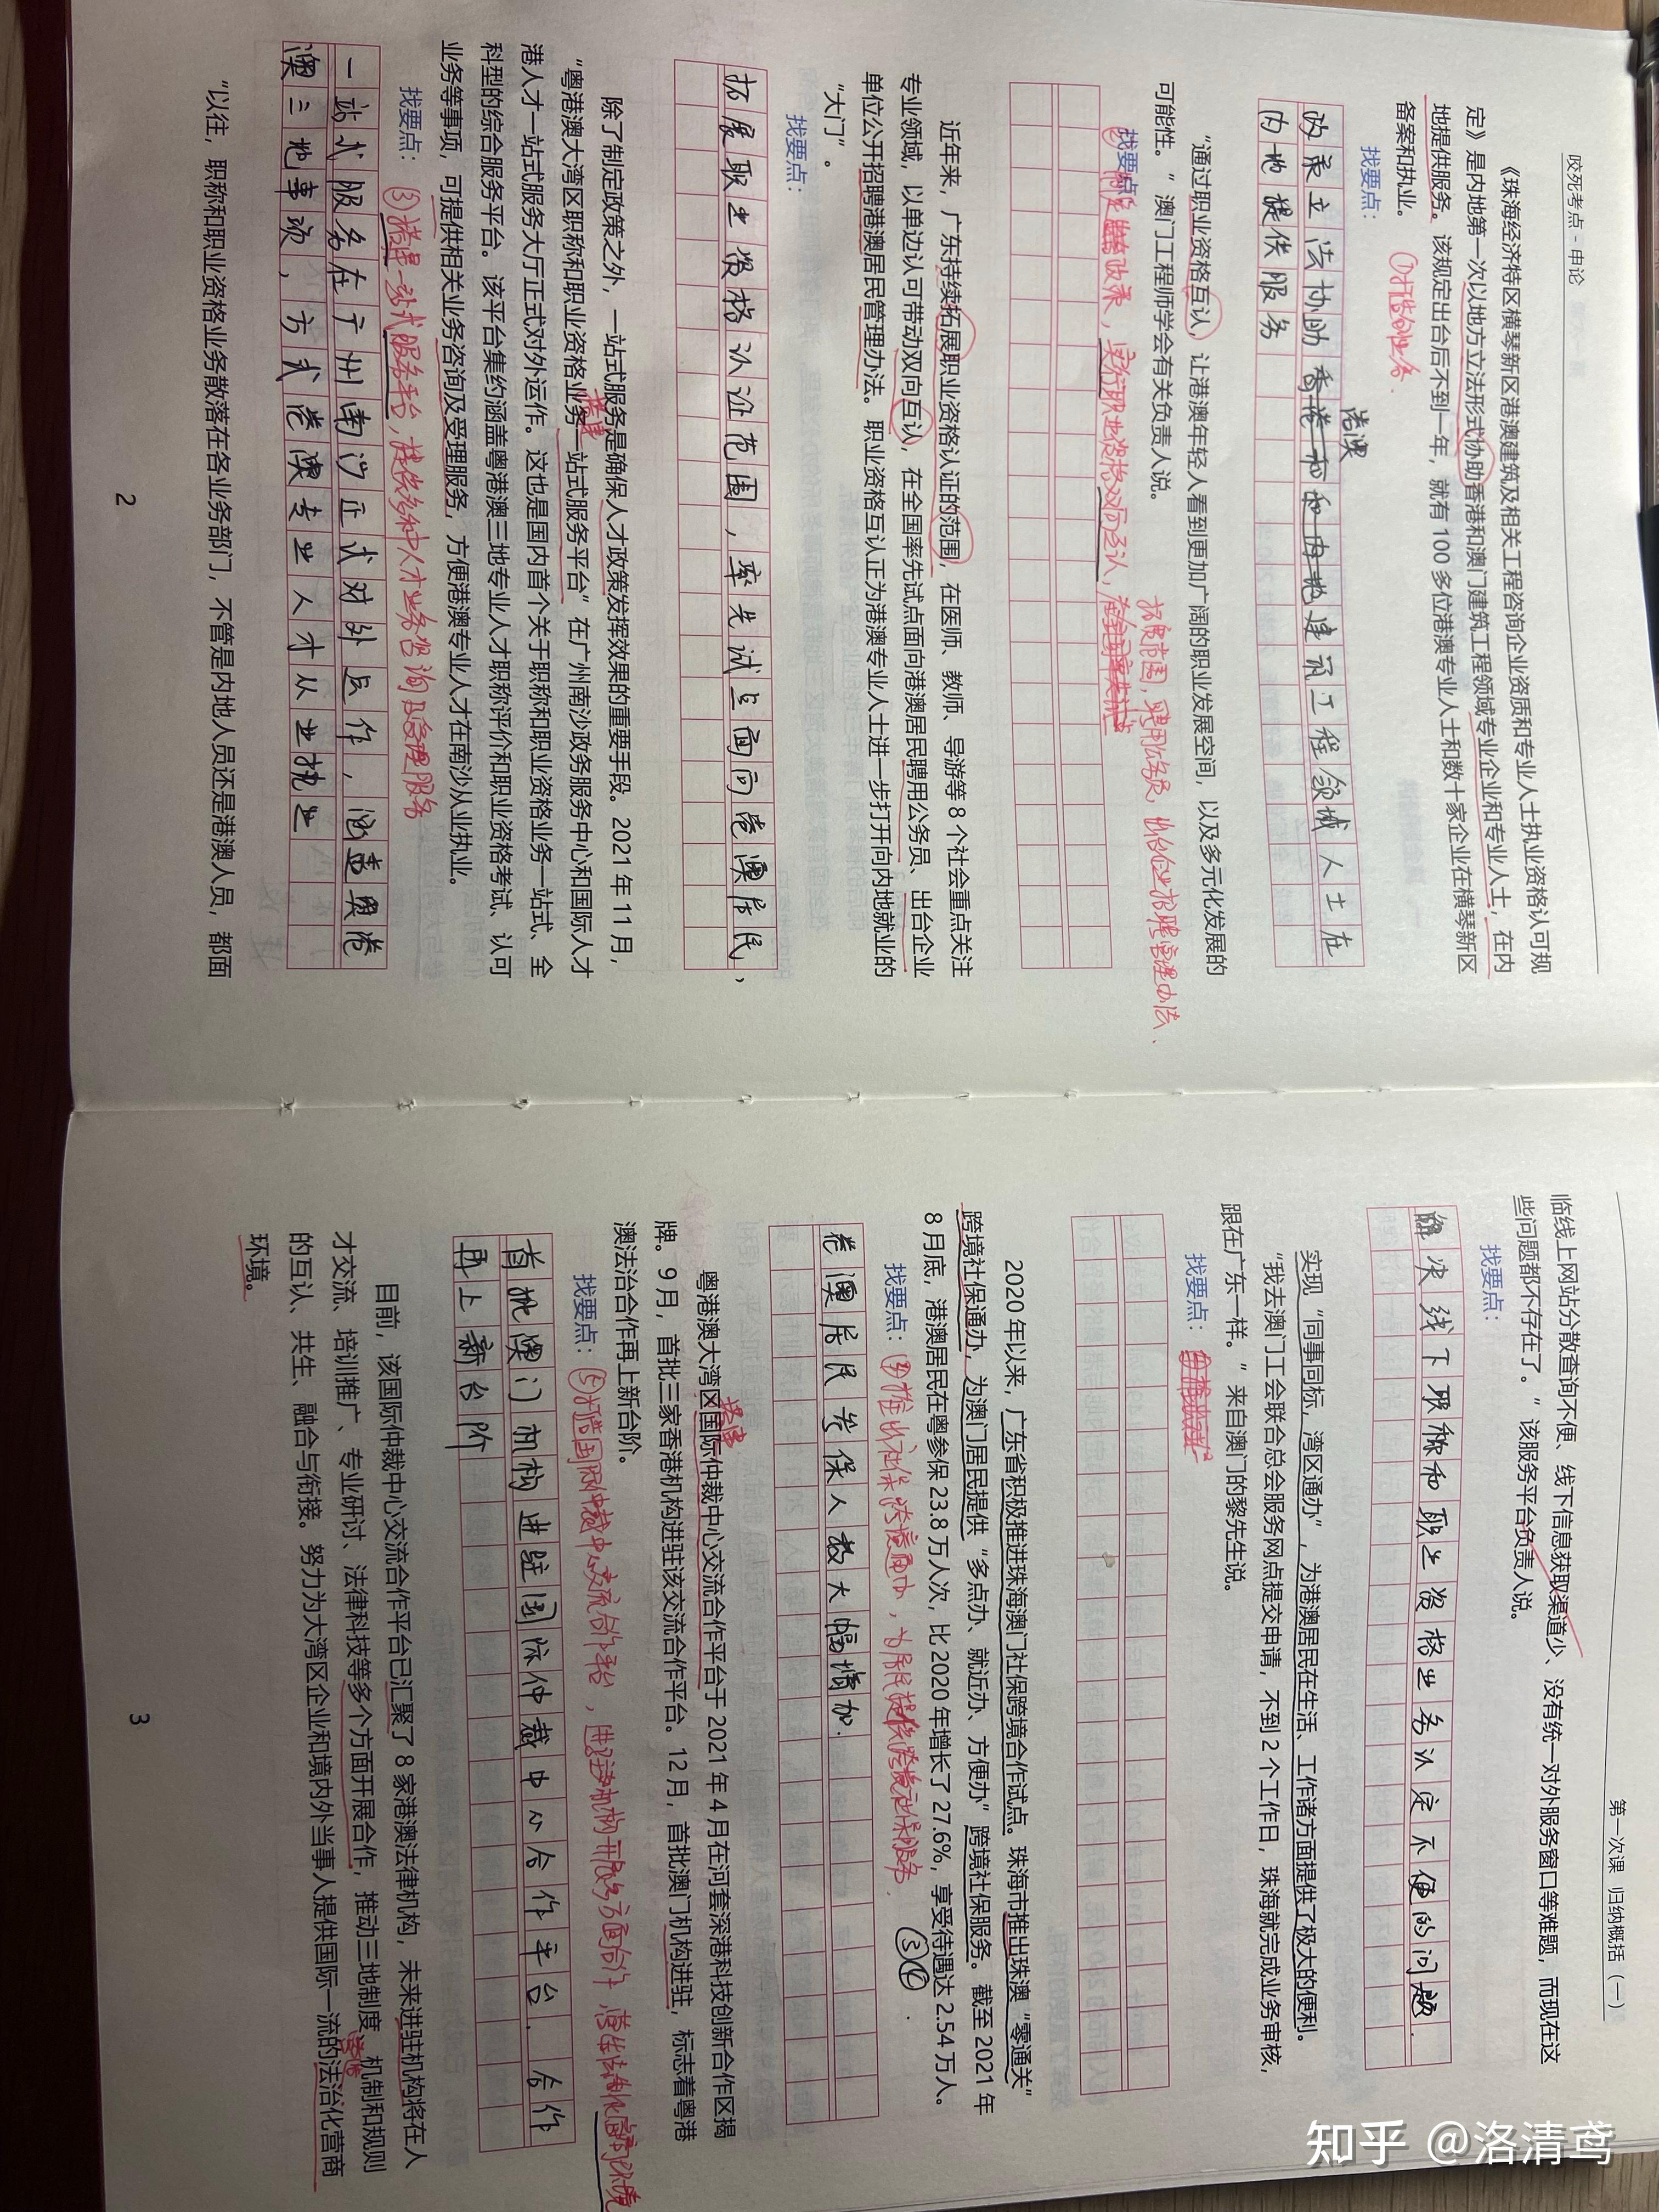 咬死考点 - 申论
《珠海经济特区横琴新区港澳建筑及相关工程咨询企业资质和专业人士执业资格认可规
定》是内地第一次以地方立法形式协助香港和澳门建筑工程领域专业企业和专业人士，在内
地提供服务。该规定出台后不到一年，就有 100 多位港澳专业人士和数十家企业在横琴新区
备案和执业。
找要点：
港澳
政策立法协助香港和和内地建筑工程领域人士在
内地提供服务
“通过职业资格互认，让港澳年轻人看到更加广阔的职业发展空间，以及多元化发展的
可能性。”澳门工程师学会有关负责人说。
找要点：
拓宽范围，聘用公务员，出台企业招聘管理办法、
近年来，广东持续拓展职业资格认证的范围，在医师、教师、导游等 8 个社会重点关注
专业领域，以单边认可带动双向互认，在全国率先试点面向港澳居民聘用公务员、出台企业
单位公开招聘港澳居民管理办法。职业资格互认正为港澳专业人士进一步打开向内地就业的
“大门”。
找要点：
拓展职业资格认证范围，率先试点面向港澳居民，
除了制定政策之外，一站式服务是确保人才政策发挥效果的重要手段。2021 年 11 月，
“粤港澳大湾区职称和职业资格业务一站式服务平台”在广州南沙政务服务中心和国际人才
港人才一站式服务大厅正式对外运作。这也是国内首个关于职称和职业资格业务一站式、全
科型的综合服务平台。该平台集约涵盖粤港澳三地专业人才职称评价和职业资格考试、认可
业务等事项，可提供相关业务咨询及受理服务，方便港澳专业人才在南沙从业执业。
找要点：
③搭建一站式服务平台，提供多种人才业务咨询及受理服务
一站式服务在广州南沙正式对外运作，涵盖粤港
澳三地事项，方式港澳专业人才从业执业
“以往，职称和职业资格业务散落在各业务部门，不管是内地人员还是港澳人员，都面
2
第一次课 归纳概括（一）
临线上网站分散查询不便、线下信息获取渠道少、没有统一对外服务窗口等难题，而现在这
些问题都不存在了。”该服务平台负责人说。
找要点：
解决线下职称和职业资格业务认定不便的问题.
实现“同事同标，湾区通办”，为港澳居民在生活、工作诸方面提供了极大的便利。
“我去澳门工会联合总会服务网点提交申请，不到 2 个工作日，珠海就完成业务审核，
跟在广东一样。”来自澳门的黎先生说。
找要点：
2020 年以来，广东省积极推进珠海澳门社保跨境合作试点。珠海市推出珠澳“零通关”
跨境社保通办，为澳门居民提供“多点办、就近办、方便办”跨境社保服务。截至 2021 年
8 月底，港澳居民在粤参保 23.8 万人次，比 2020 年增长了 27.6%，享受待遇达 2.54 万人。
找要点：④推出社保跨境通办，为居民提供跨境社保服务
③④
港澳居民劳保人数大幅增加.
搭建
粤港澳大湾区国际仲裁中心交流合作平台于 2021 年 4 月在河套深港科技创新合作区揭
牌。9 月，首批三家香港机构进驻该交流合作平台。12 月，首批澳门机构进驻，标志着粤港
澳法治合作再上新台阶。
找要点：⑤打造国际仲裁中心交流合作平台，进驻机构开展多方面合作，营造法制化营商环境
首批澳门机构进驻国际仲裁中心合作平台.合作
再上新台阶
目前，该国际仲裁中心交流合作平台已汇聚了 8 家港澳法律机构，未来进驻机构将在人
才交流、培训推广、专业研讨、法律科技等多个方面开展合作，推动三地制度、机制和规则
的互认、共生、融合与衔接。努力为大湾区企业和境内外当事人提供国际一流的法治化营商
环境。
3
知乎 @洛清鸢